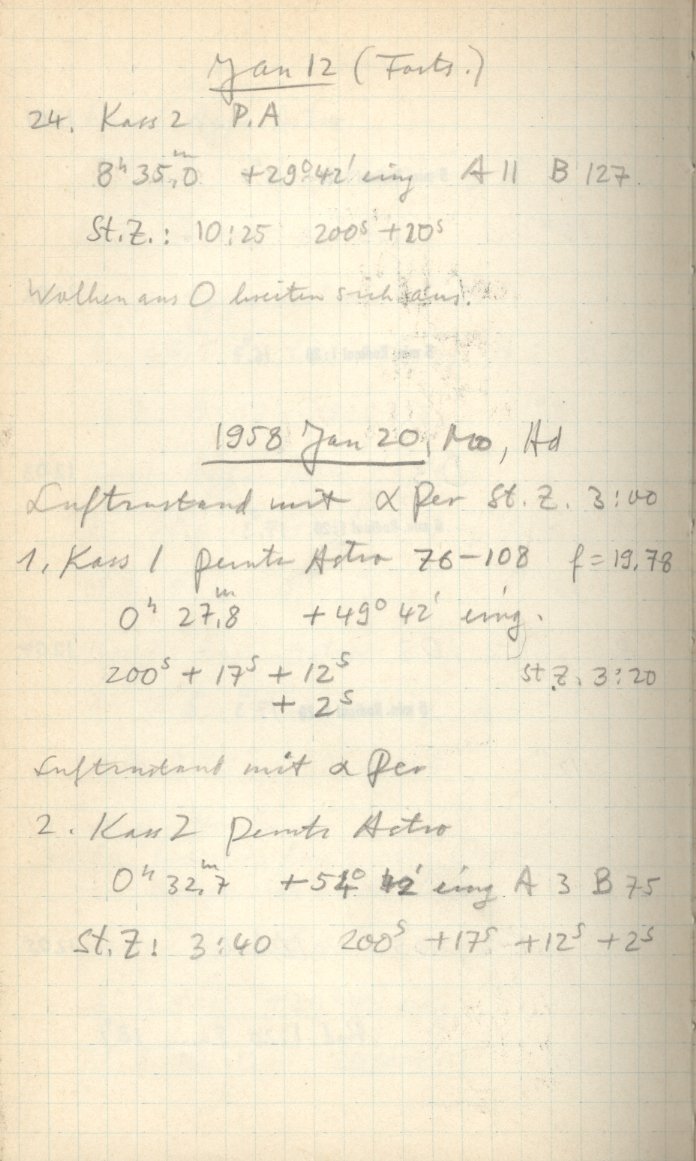 Jan 12 (Forts.)
24. Kass 2 P.A
8ʰ 35,ᵐ0 +29° 42' eing A 11 B 127
St.Z.: 10:25 200ˢ +20ˢ
Wolken aus O breiten sich aus.
1958 Jan 20, Mo, Hd
Luftzustand mit α Per St.Z. 3:00
1. Kass 1 Perutz Astro 76–108 f=19,78
0ʰ 27,ᵐ8 +49° 42' eing.
200ˢ + 17ˢ + 12ˢ St.Z. 3:20
+ 2ˢ
Luftzustand mit α Per
2. Kass 2 Perutz Astro
0ʰ 32,ᵐ7 +54° 42' eing A 3 B 75
St.Z: 3:40 200ˢ +17ˢ +12ˢ +2ˢ